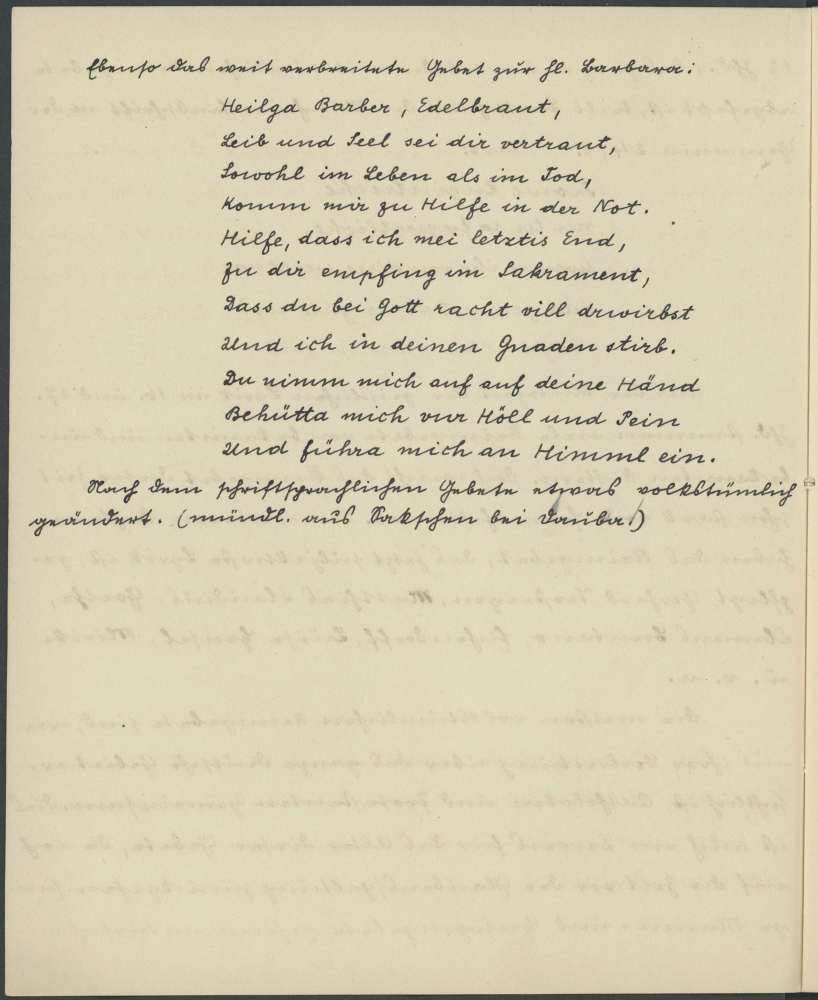 Ebenso das weit verbreitete Gebet zur hl. Barbara:
Heilga Barber, Edelbraut,
Leib und Seel sei dir vertraut,
Sowohl im Leben als im Tod,
Komm mir zu Hilfe in der Not.
Hilfe, dass ich mei letztis End,
Zu dir empfing im Sakrament,
Dass du bei Gott racht vill drwirbst
Und ich in deinen Gnaden stirb.
Du nimm mich auf auf deine Händ
Behütta mich vur Höll und Pein
Und führa mich an Himml ein.
Nach dem schriftsprachlichen Gebete etwas volkstümlich
geändert. (mündl. aus Sakschen bei Dauba.)